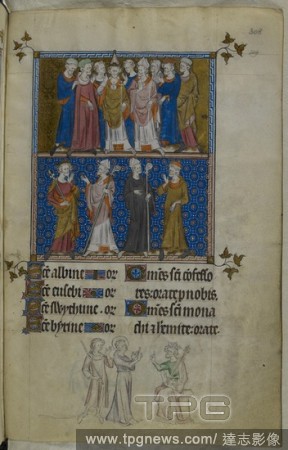 Sce albine or
Sce eusebi or
Sce swythine or
Sce byrine or
Omes sci cofesso
res: orate p nobis.
Omes sci mona
orate.
TPG
www.tpgnews.com / 達志影像